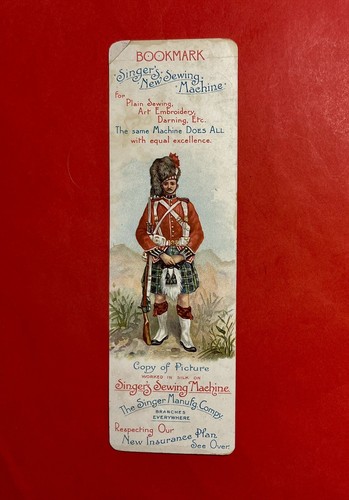 BOOKMARK
"Singer's
New Sewing
Machine"
for
Plain Sewing,
Art Embroidery,
Darning, Etc.
The same Machine DOES ALL
with equal excellence.
Copy of Picture
WORKED IN SILK ON
Singer's Sewing Machine.
The Singer Manufg. Compy
BRANCHES
EVERYWHERE
Respecting Our
New Insurance Plan
See Over.